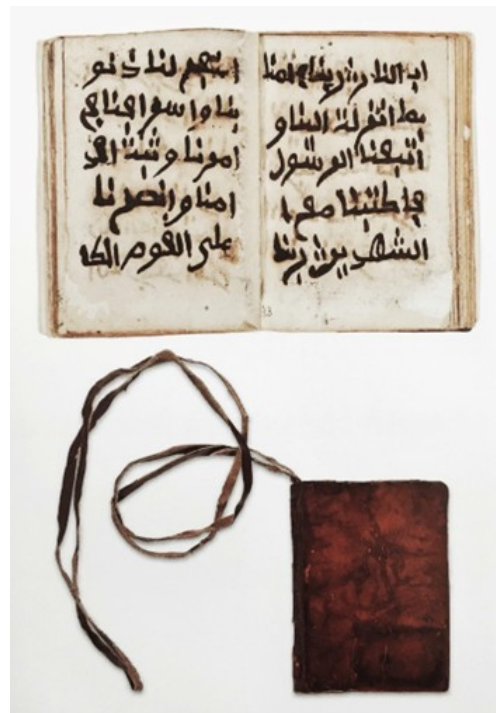 اب النار ربنا امنا
بما انزلت و
اتبعنا الرسول
فاكتبنا مع ا
الشهدين ربنا
اغفر لنا ذنو
بنا واسرافنا في
امرنا وثبت اقد
امنا وانصرنا
على القوم الكا
33